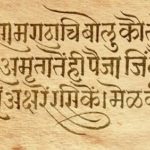 मराठाचि बोलु कौत
अमृतातेंही पैजा जिं
अक्षरें रसिकें। मेळवी